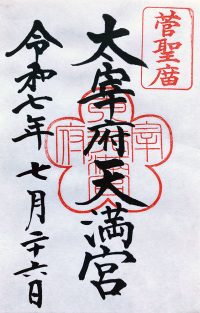 菅聖庿
太宰府天満宮
令和七年七月廿六日